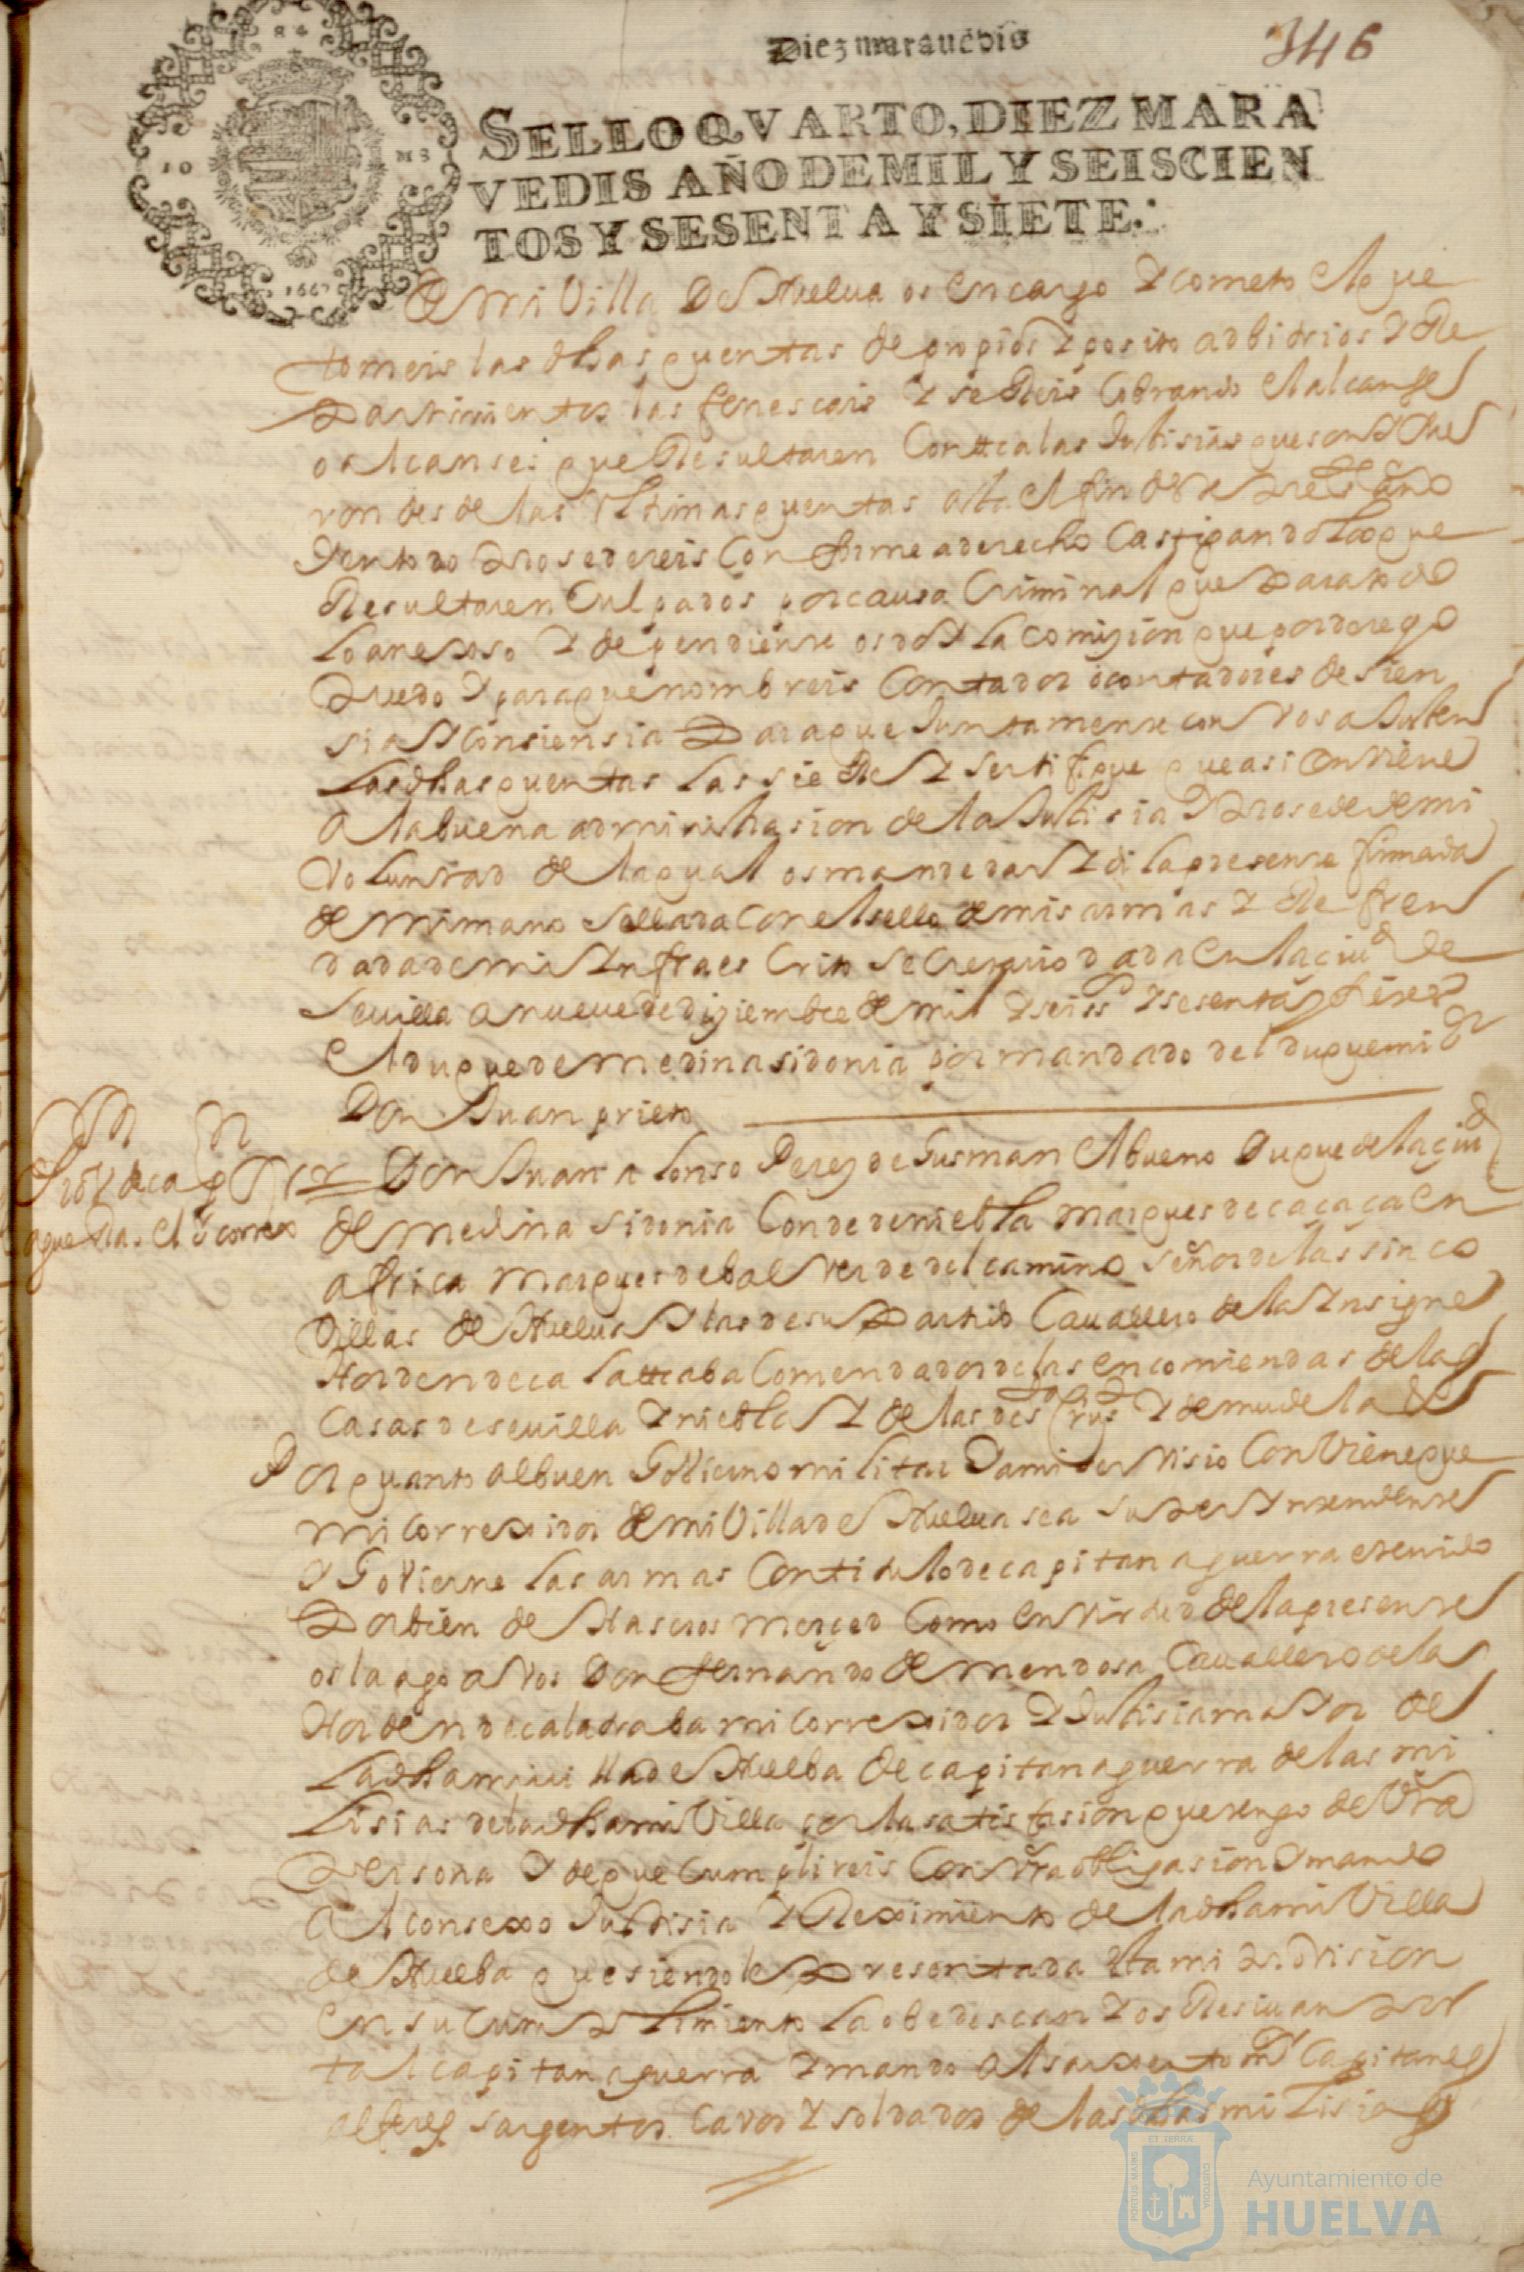 Diez maravedis
346
SELLO QVARTO, DIEZ MARA
VEDIS AÑO DE MIL Y SEISCIEN
TOS Y SESENTA Y SIETE.
de mi Villa de Huelua os encargo Y cometo el que
tomeis las dhas quentas de propios Y posito adbitrios Y Re
partimientos las fenescais Y se Reis Cobrando el alcanse
o alcanses que Resultaren Contra las Justisias que son Y fue
ron desde las Vltimas quentas asta el fin de este pres.te año
Y en todo prosedereis Conforme a derecho Castigando lo que
Resultaren Culpados por causa Criminal que para todo
lo anexso Y dependiente os doY la Comision que por derecho
puedo Y para que nombreis Contador o contadores de sien
sia Y Consiensia para que Juntamente con Vos ajusten
las dhas quentas las sie Re Y sertifique que asi Conviene
a la buena administrasion de la Justisia Y prosede de mi
Voluntad de la qual os mande dar Y di la presente firmada
de mi mano Sellada Con el sello de mis armas Y Refren
dada de mi Ynfraescrito Secretario dada En la ciud de
Sevilla a nueve de diziembre de mil Y seiss.os Y sesenta y
El duque de Medina sidonia por mandado del duque mi s.r
Don Juan prieto
ague Ra. el s.r correx.or
Don Juan alonso Perez de Gusman el bueno Duque de la ciud
de Medina Sidonia Conde de niebla Marques de caçaça En
africa Marques de balVerde del camino Señor de las sinco
Villas de Huelua Y las de su partido Cauallero de la Ynsigne
Horden de calatraba Comendador de las encomiendas de las
Casas de seuilla Y niebla Y de las des Y de mudela &
Por quanto al buen Govierno militar Y a mi serVisio ConViene que
mi Correxidor de mi Villa de Huelua sea superYntendente
Y Govierne las armas Con titulo de capitan a guerra e tenido
por bien de Haseros Merced Como En Virtud de la presente
os la ago a Vos Don fernando de Mendosa Cauallero de la
Horden de calatraba mi Correxidor Y Justisia maYor de
la dha mi villa de Huelba de capitan a guerra de las mi
lisias de la dha mi Villa por la satisfasion que tengo de Vra
persona Y de que Cumplireis Con Vra obligasion Y mando
al Consexo Justisia Y Reximiento de la dha mi Villa
de Huelba que siendoles presentada esta mi proVision
En su Cumplimiento la obedescan Y os Resiuan por
tal capitan a guerra Y mando al sarxento m.r Capitanes
alferes sargentos Cavos Y soldados de las dhas milisias
Ayuntamiento de
HUELVA